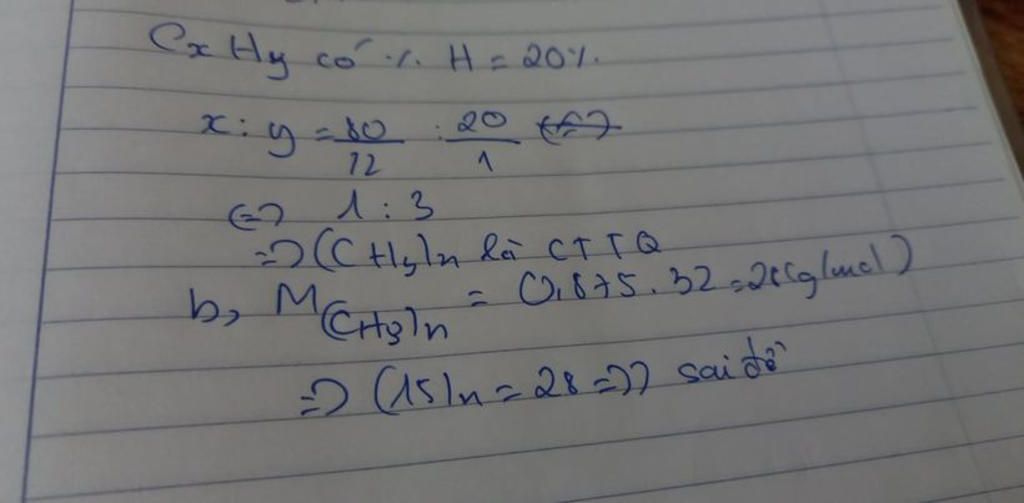 CxHy có % H = 20%.
x : y = 80/12 : 20/1
<=> 1 : 3
=> (CH3)n là CTTQ
b, M(CH3)n = 0,875.32 = 28 (g/mol)
=> (15)n = 28 => ? sai đề